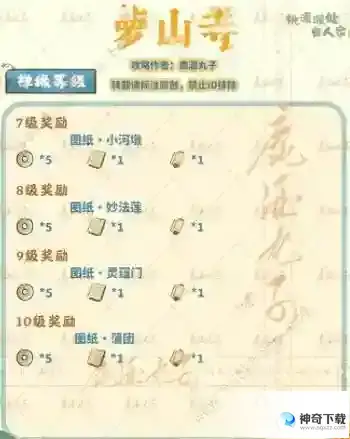 桃源深处
有人家
攻略作者：鹿酒丸子
转载请标注原创，禁止ID转降
7级奖励
图纸·小河墩
*5 *1 *1
8级奖励
图纸·妙法莲
*5 *1 *1
9级奖励
图纸·灵蕴门
*5 *1 *1
10级奖励
图纸·蒲团
*5 *1 *1
鹿酒丸子
神奇下载